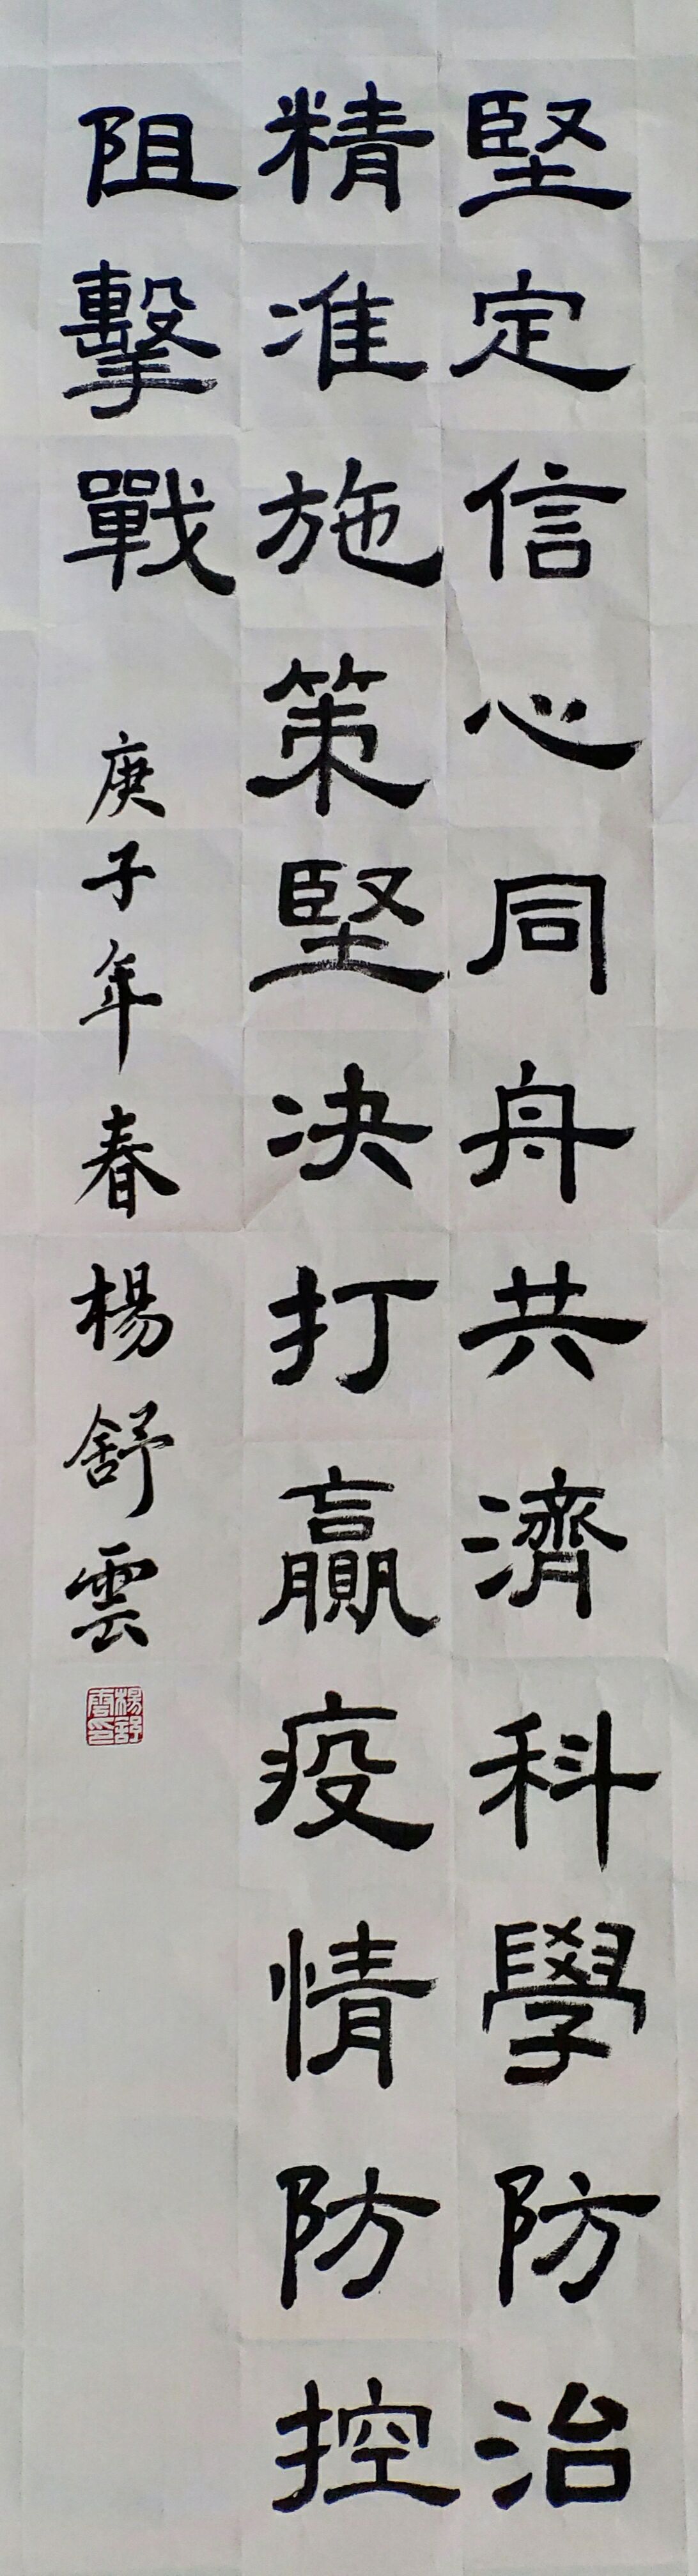 堅定信心同舟共濟科學防治
精准施策堅决打贏疫情防控
阻擊戰
庚子年春楊舒雲
楊舒雲印